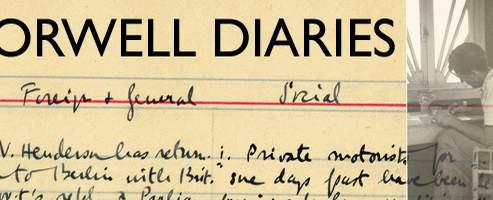 ORWELL DIARIES
Foreign & General Social
V. Henderson has return. i. Private motorists for
to Berlin with Brit. some days past have been